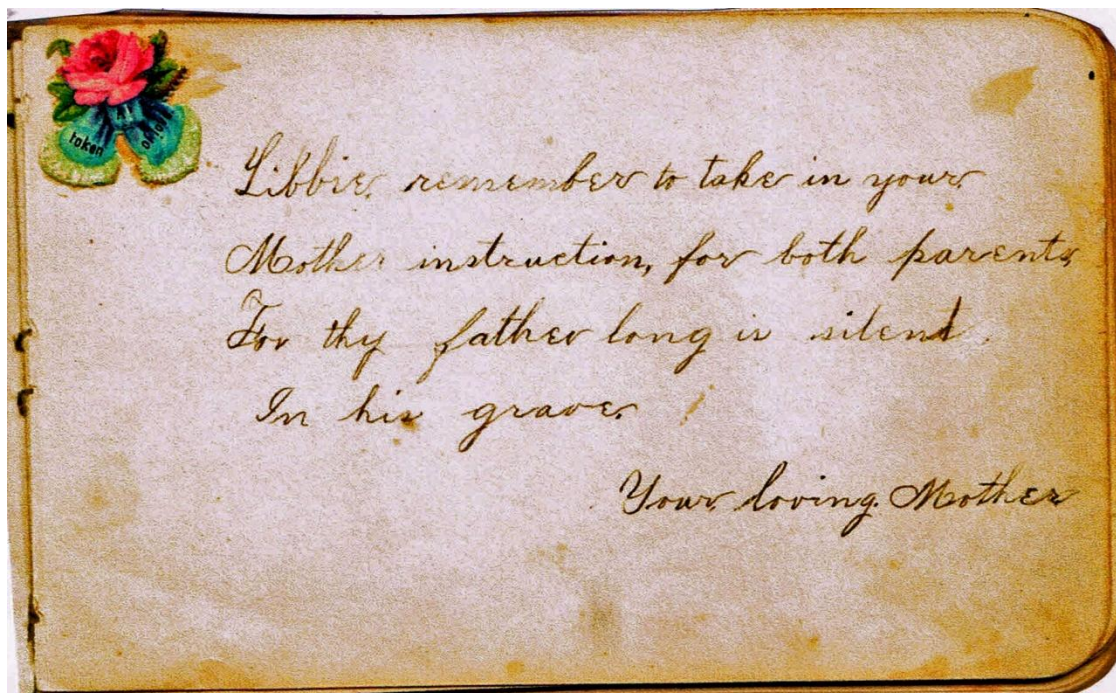 token
Libbie remember to take in your
Mother instruction, for both parents,
For thy father long is silent.
In his grave.
Your loving Mother